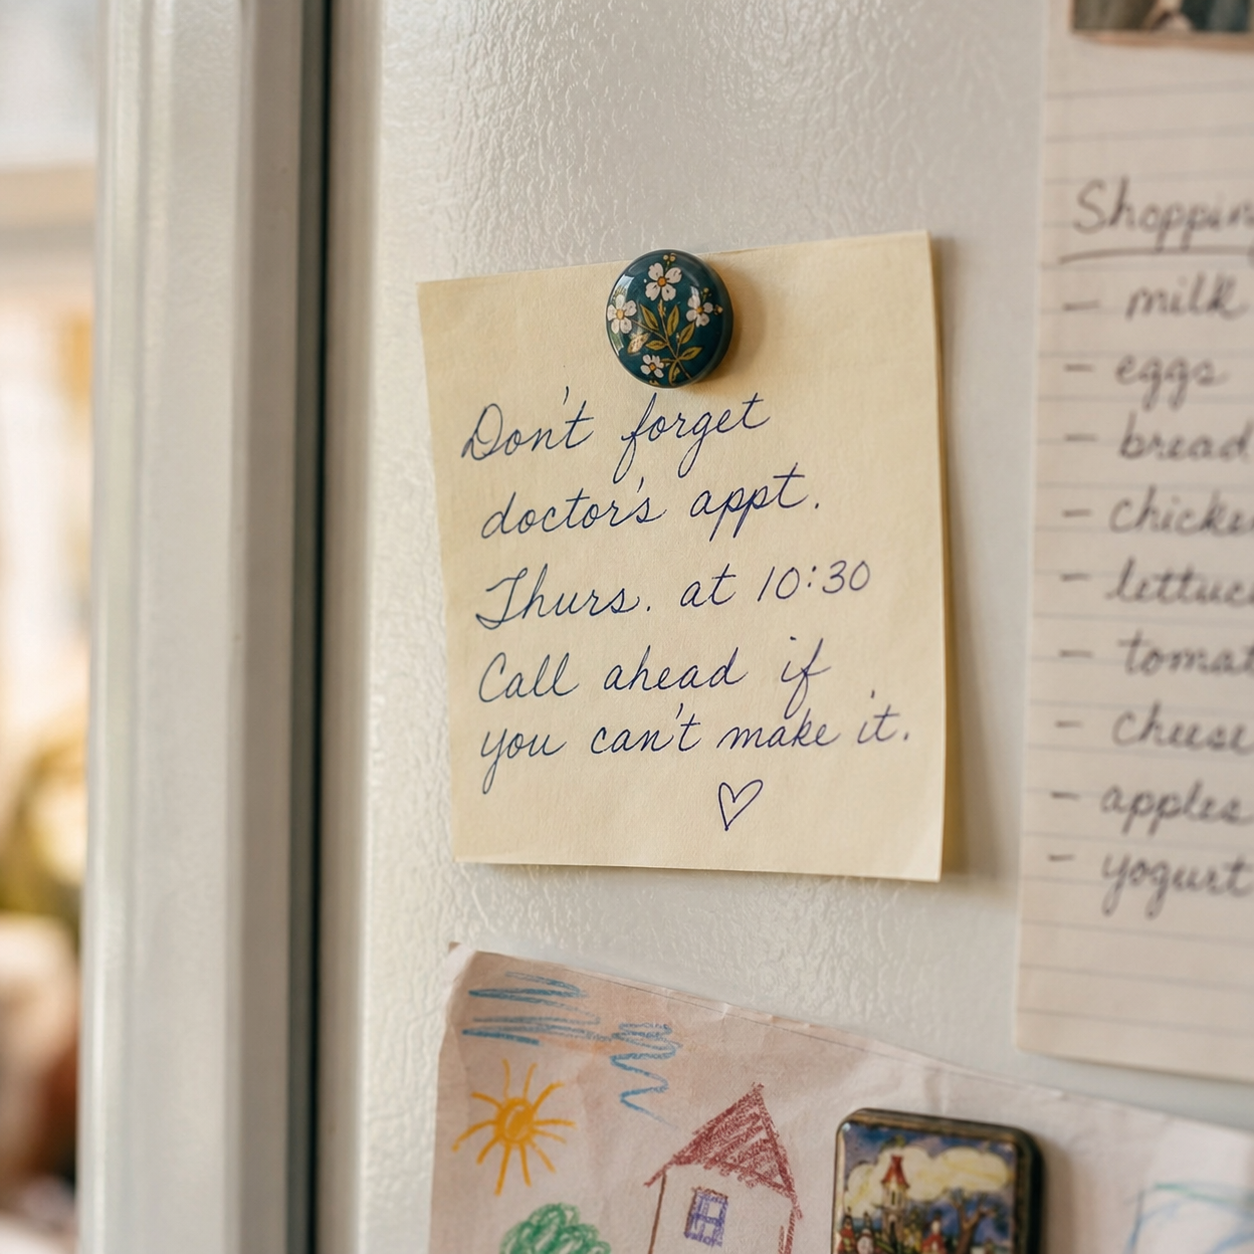 Don't forget
doctor's appt.
Thurs. at 10:30
Call ahead if
you can't make it.
♡
Shopping
- milk
- eggs
- bread
- chicke
- lettuc
- tomat
- cheese
- apples
- yogurt